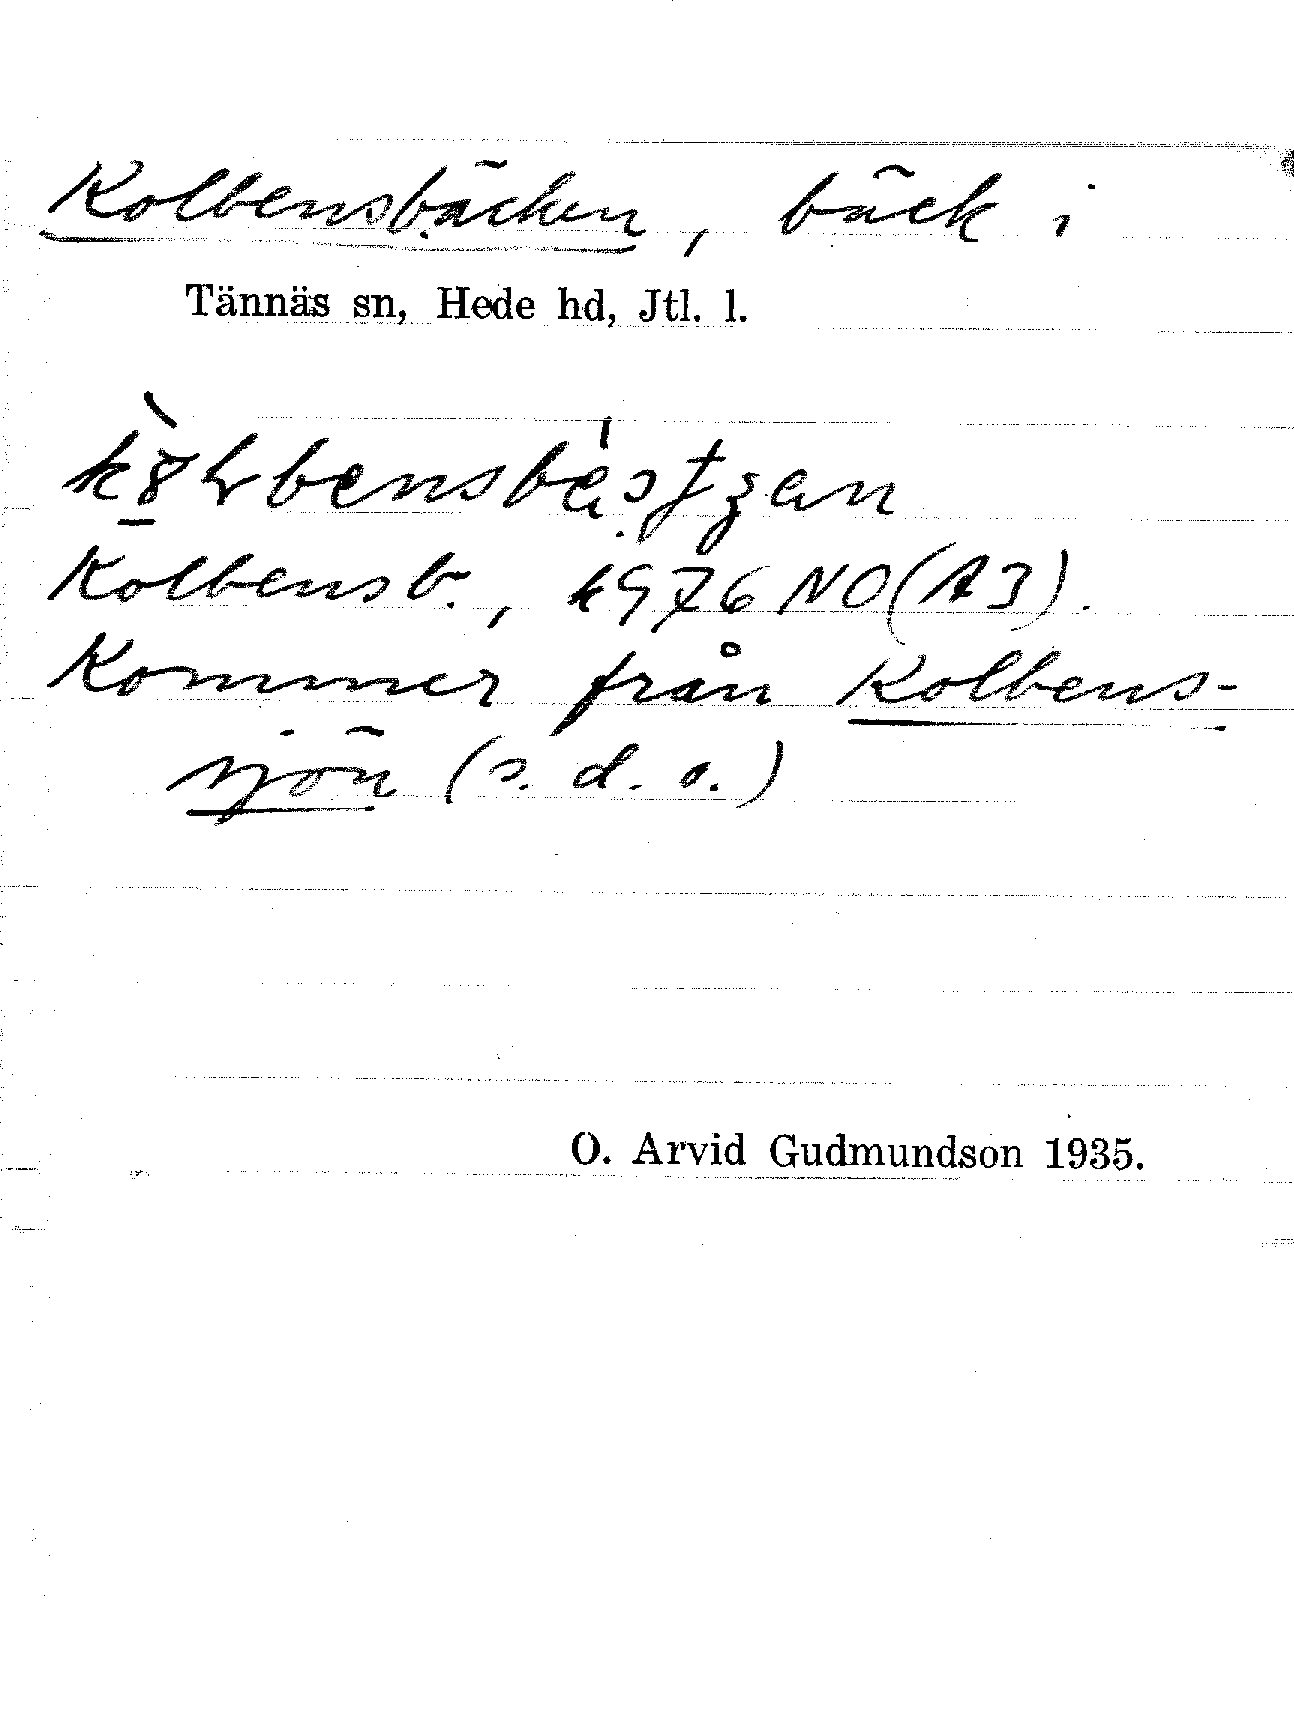 Kolbensbäcken, bäck i
Tännäs sn, Hede hd, Jtl. l.
Kolbensb., k976 NO (A3).
Kommer från Kolbens-
sjön (s. d. o.)
O. Arvid Gudmundson 1935.